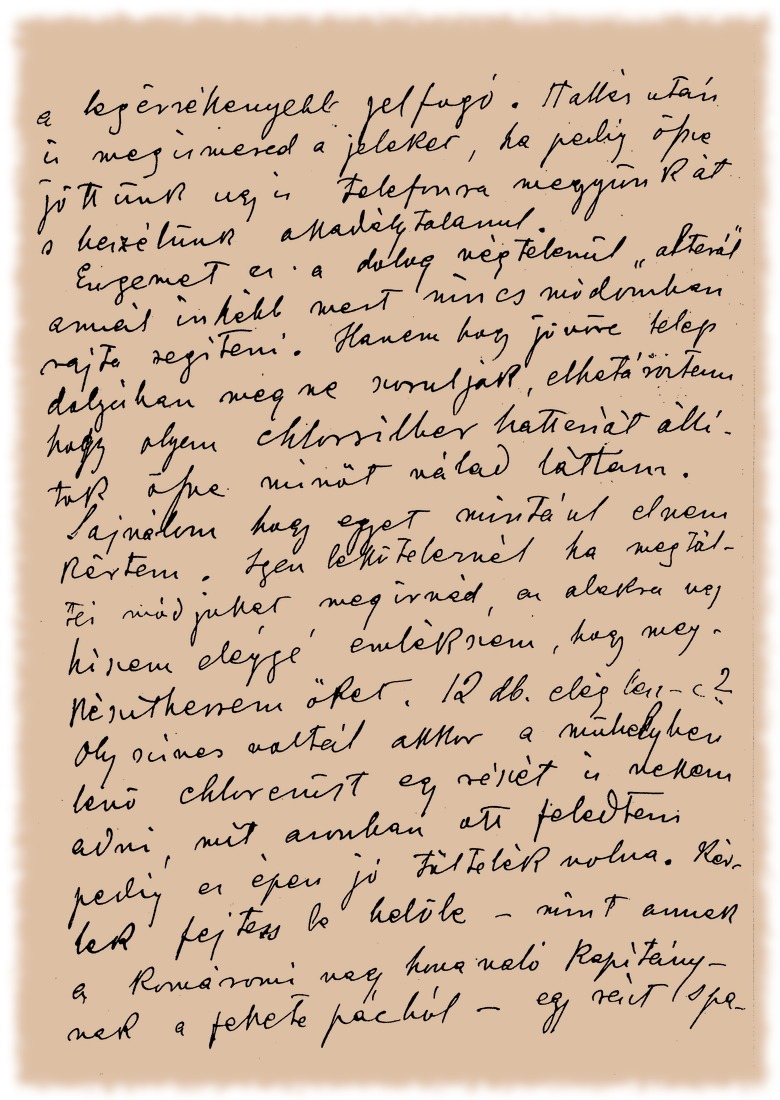 a legérzékenyebb jelfogó. Hallás után
is megismered a jeleket, ha pedig össze
jöttünk ugy is telefonra megyünk át
s beszélünk akadálytalanul.
Engemet ez a dolog végtelenül „alterál"
annál inkább mert nincs módomban
rajta segíteni. Hanem hogy jövőre telep
dolgában meg ne szoruljak, elhatároztam
hogy olyan chlorsilber batteriát álli-
tok össze minőt nálad láttam.
Sajnálom hogy egyet mintául elnem
kértem. Igen leköteleznél ha megtöl-
tési módjukat megirnád, az alakra ugy
hiszem eléggé emlékszem, hogy meg-
készithessem őket. 12 db. elég lesz-e?
Oly szives voltál akkor a műhelyben
levő chlorezüst egy részét is nekem
adni, mit azonban ott feledtem
pedig ez épen jó töltelék volna. Kér-
lek fejtess le belőle – mint annak
a Komáromi vagy hova való kapitány-
nak a fekete pácból – egy részt spa-